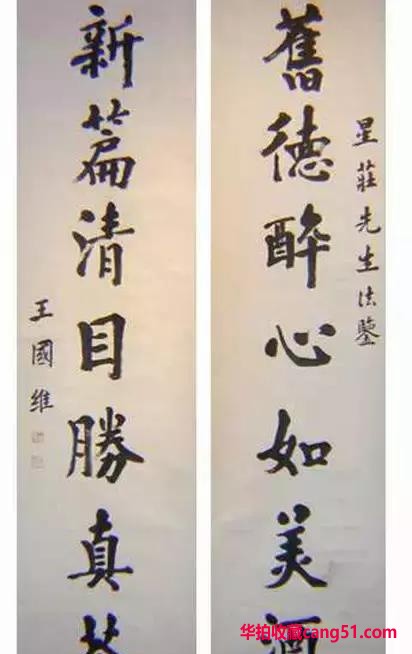 星莊先生法鑒
舊德醉心如美酒
新篇清目勝真
王國維
华拍收藏cang51.com